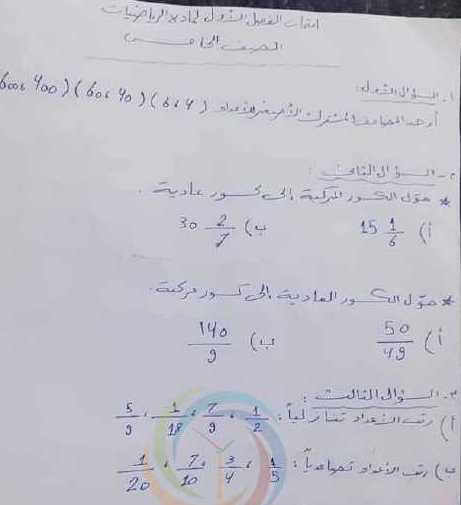 امتحان الفصل الأول لمادة الرياضيات
الصف الخامس
1- السؤال الأول:
أوجد المضاعف المشترك الأصغر للأعداد (4 ، 6) (40 ، 60) (400 ، 600)
2- السؤال الثاني:
* حوّل الكسور المركبة إلى كسور عادية.
أ) 15 1/6 ب) 30 2/7
* حوّل الكسور العادية إلى كسور مركبة.
أ) 50/49 ب) 140/9
3- السؤال الثالث:
أ) رتب الأعداد تنازلياً: 1/2 ، 7/9 ، 1/18 ، 5/9
ب) رتب الأعداد تصاعدياً: 1/5 ، 3/4 ، 7/10 ، 1/20